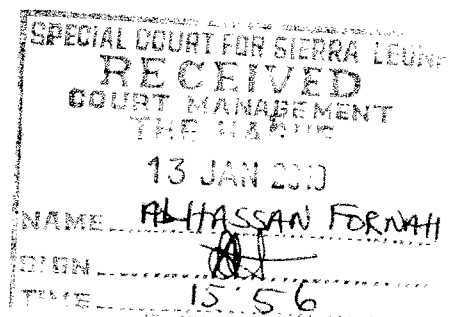 SPECIAL COURT FOR SIERRA LEONE
RECEIVED
COURT MANAGEMENT
THE HAGUE
13 JAN
NAME ALHASSAN FORNAH
SIGN
TIME 15 56